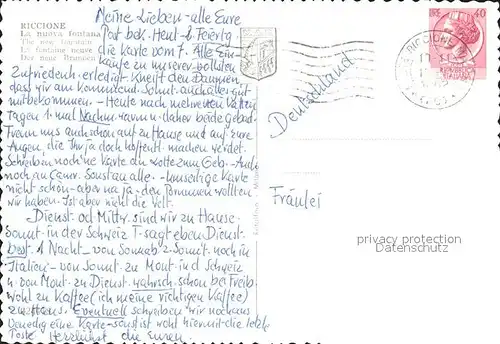 RICCIONE
La nuova fontana
The new fountain
La fontaine neuve
Der neue Brunnen
Meine Lieben - alle Eure
Post bek. Heut b. Feiertg
die Karte vom 7. Alle Ein-
käufe zu unserer vollsten
Zufriedenh. erledigt. Kneift den Daumen
dass wir am kommend. Sonnt. auch alles gut
mitbekommen - Heute nach mehreren kalten
Tagen 1. mal Nachm. warm u. daher beide gebad.
Freun uns auch schon auf zu Hause und auf eure
Augen, die Ihr ja doch hoffentl. machen werdet.
Schreiben noch 'ne Karte an Lotte zum Geb. - Auch
noch an Sonst an alle. - Umseitige Karte
nicht schön - aber na ja - den Brunnen wollten
wir haben. Ist aber nicht die Welt.
Dienst. od Mittw. sind wir zu Hause.
Sonnt. in der Schweiz T. sagt eben Dienst.
best. 1 Nacht - von Sonnab. z. Sonnt. noch in
Italien - von Sonnt. zu Mont. in d Schweiz
u. von Mont. zu Dienst. wahrsch. schon bei Freib.
Wohl zu Kaffee (ich meine richtigen Kaffee)
zu Haus. Eventuell schreiben wir noch aus
Venedig eine Karte - sonst ist wohl hiermit die letzte
Post. Herzlichst die Euren
Deutschland
Fräulei
RICCIONE
40
privacy protection
Datenschutz